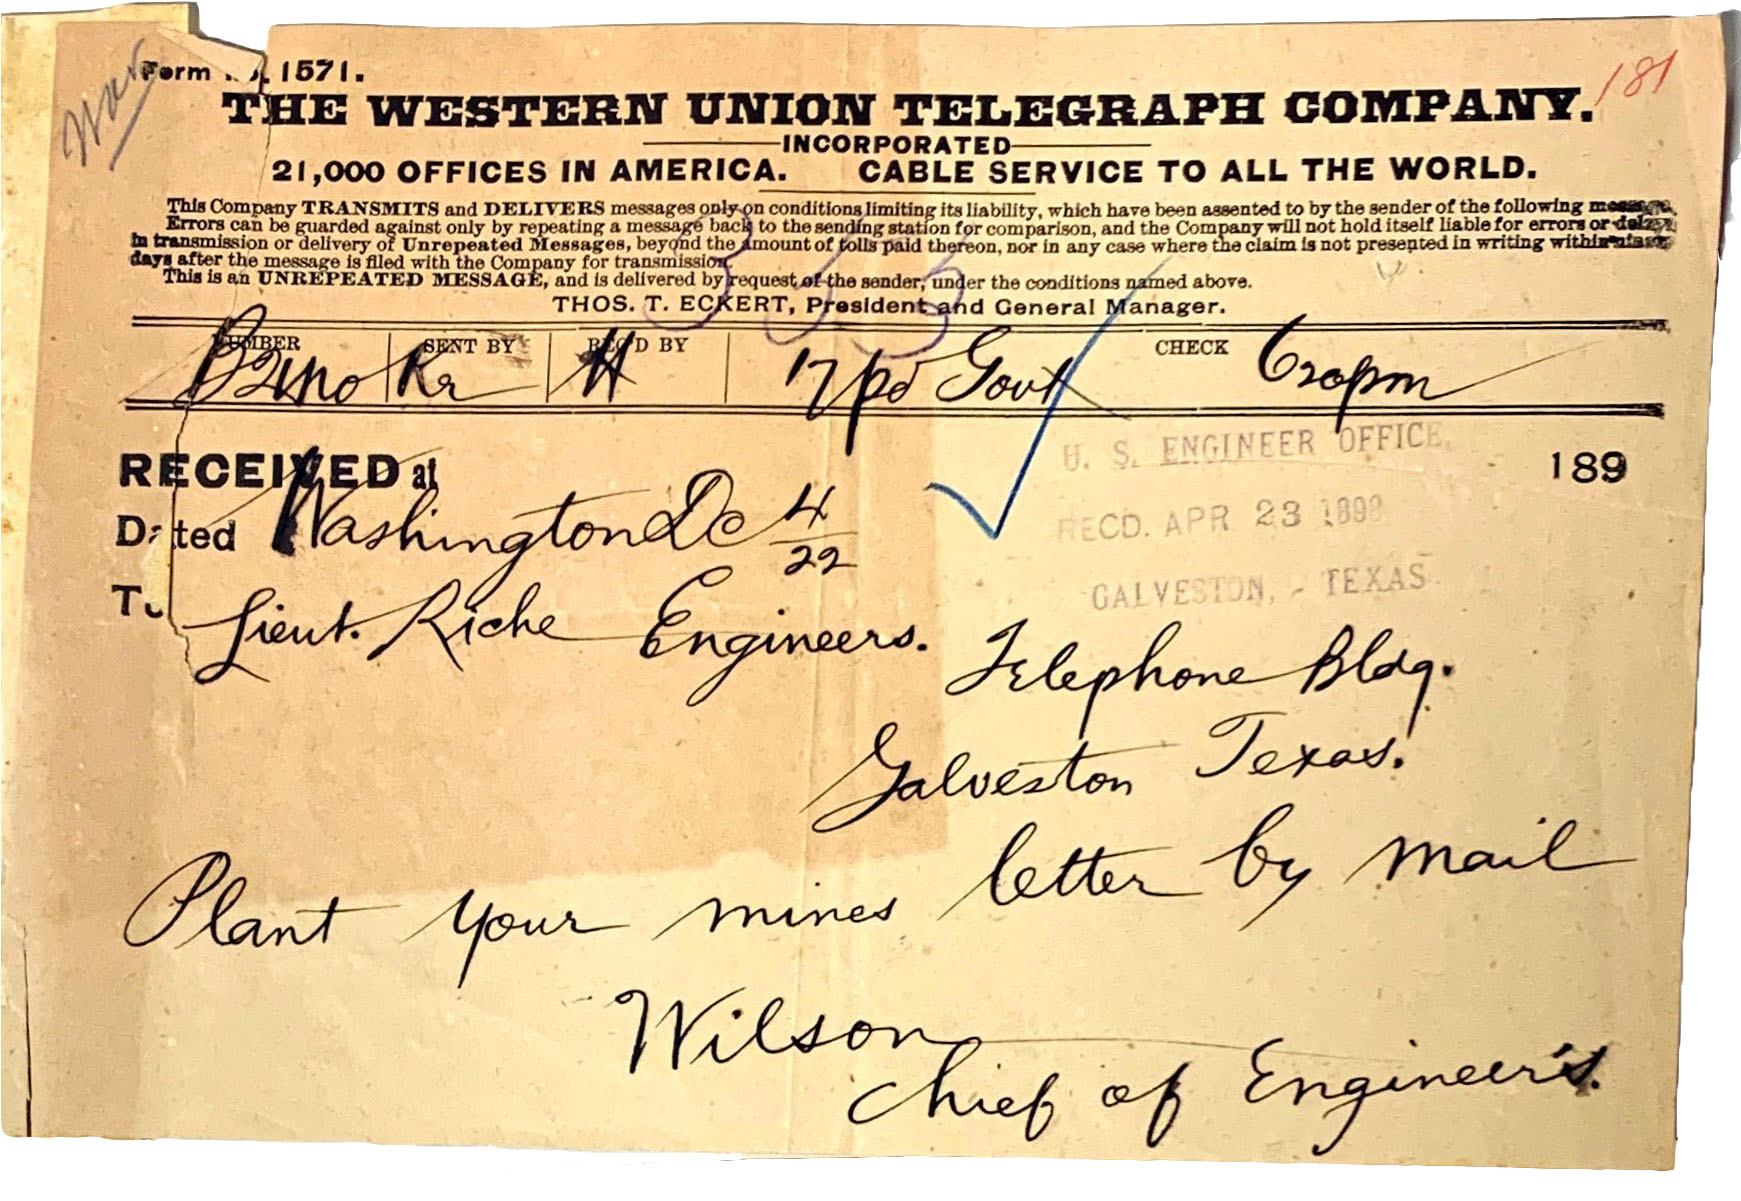 War
Form No. 1571.
181
THE WESTERN UNION TELEGRAPH COMPANY.
INCORPORATED
21,000 OFFICES IN AMERICA. CABLE SERVICE TO ALL THE WORLD.
This Company TRANSMITS and DELIVERS messages only on conditions limiting its liability, which have been assented to by the sender of the following message.
Errors can be guarded against only by repeating a message back to the sending station for comparison, and the Company will not hold itself liable for errors or delays
in transmission or delivery of Unrepeated Messages, beyond the amount of tolls paid thereon, nor in any case where the claim is not presented in writing within
days after the message is filed with the Company for transmission.
This is an UNREPEATED MESSAGE, and is delivered by request of the sender, under the conditions named above.
THOS. T. ECKERT, President and General Manager.
333
NUMBER SENT BY REC'D BY CHECK
Kr H 17 pd Govt 620pm
RECEIVED at 189
U. S. ENGINEER OFFICE.
RECD. APR 23 1898
GALVESTON, - TEXAS
Dated Washington DC 4/22
To Lieut. Riche Engineers.
Telephone Bldg.
Galveston Texas.
Plant your mines letter by mail
Wilson
Chief of Engineers.